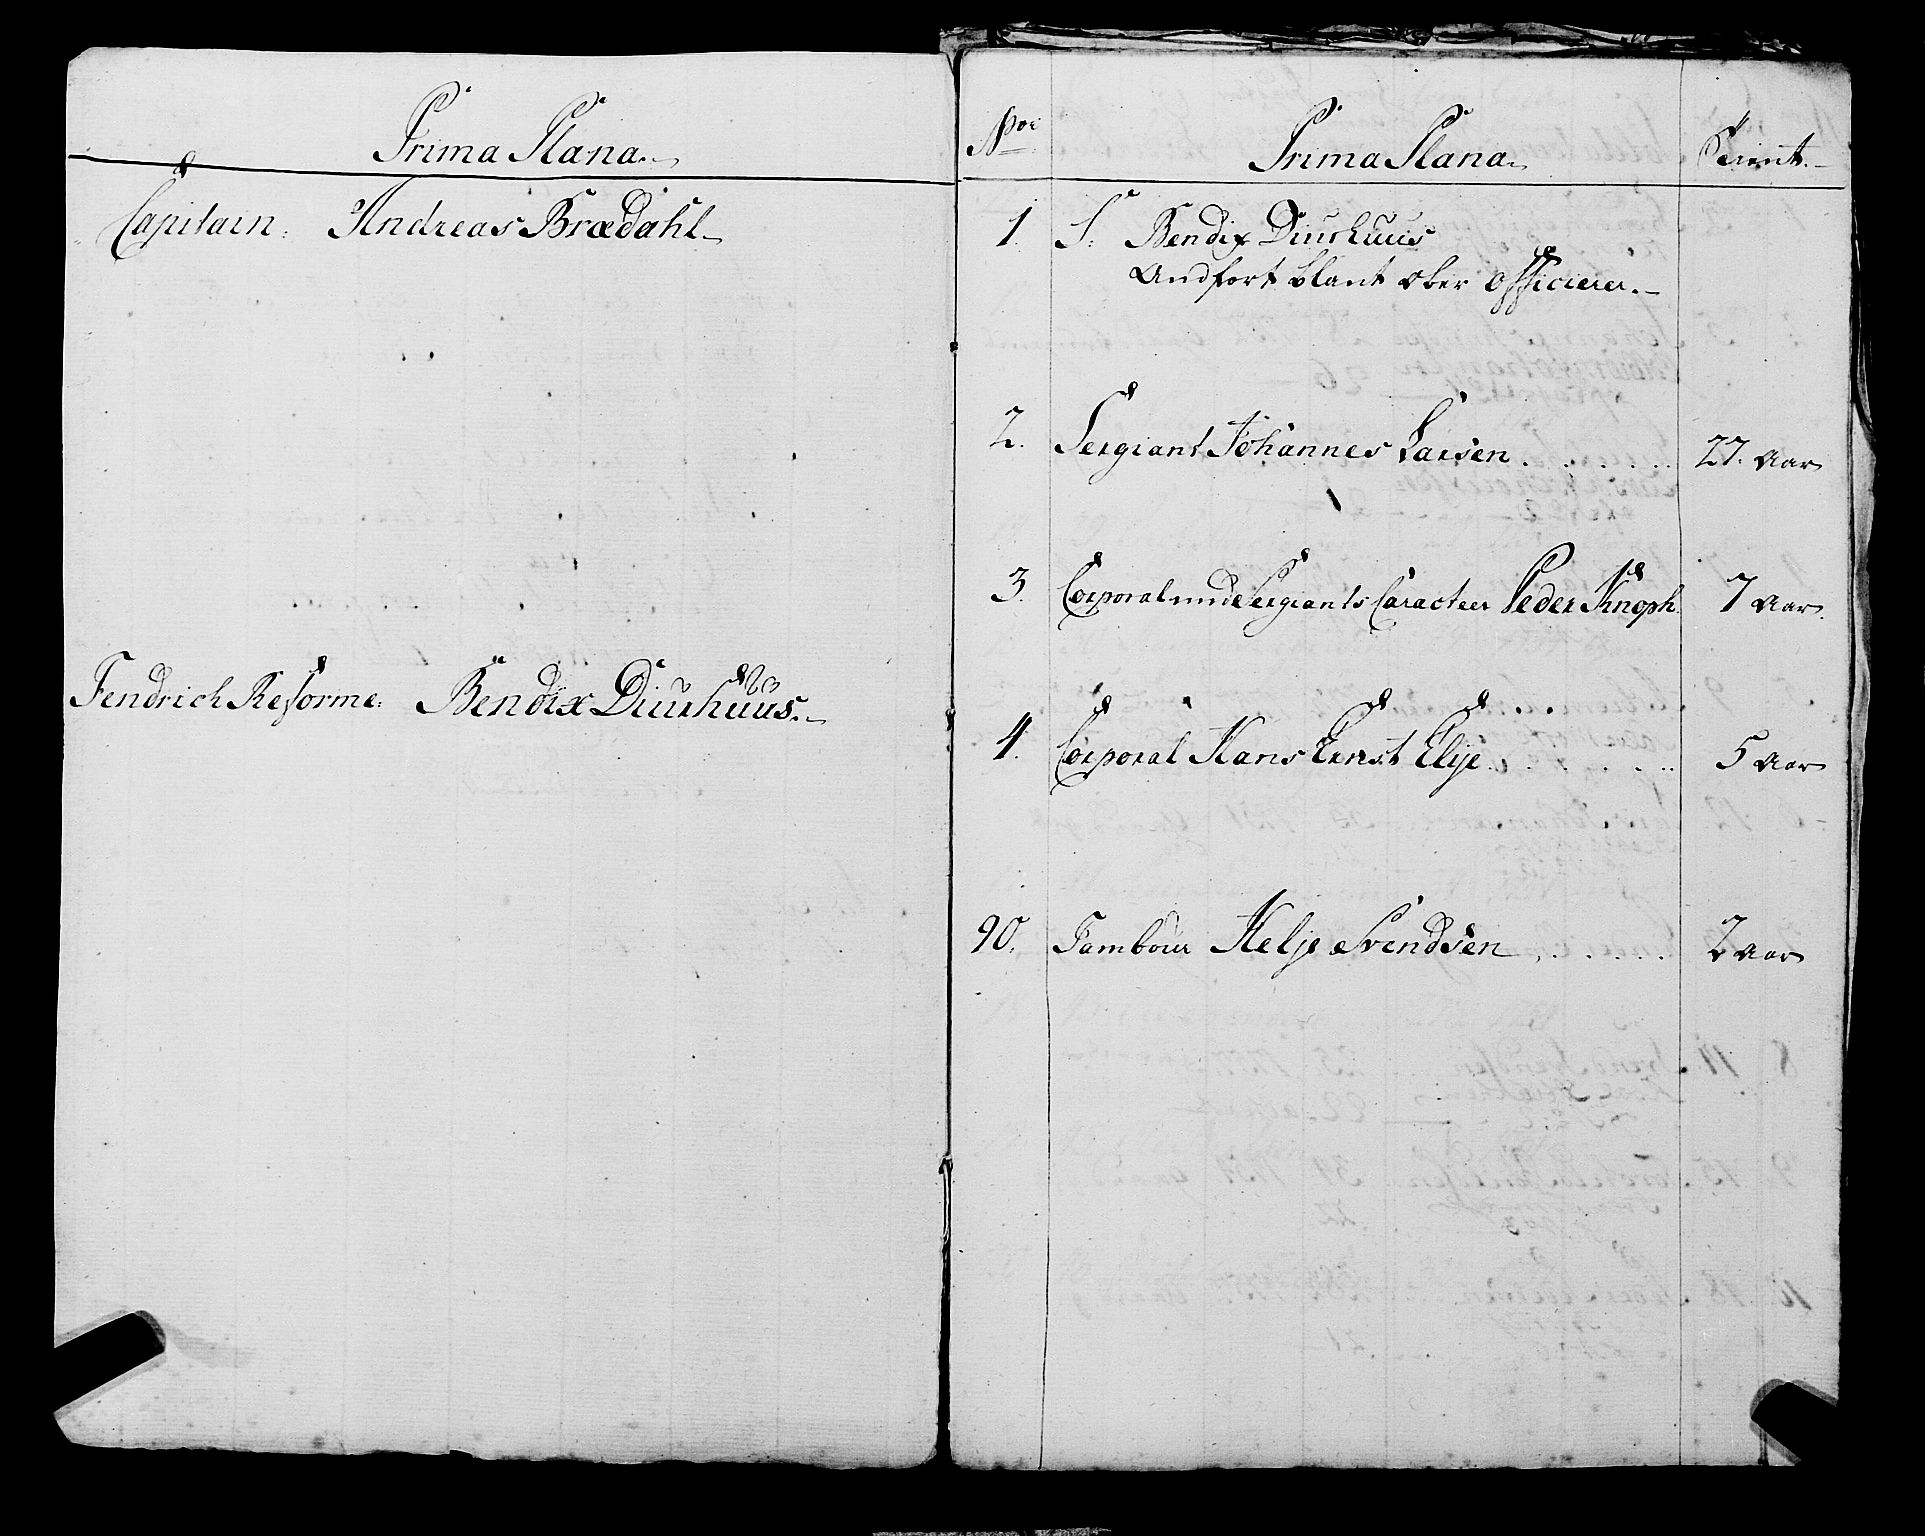 Prima Plana.
Capitain: Andreas Brædahl
Fendrich Reforme: Bendix Diurhuus.
No:
Prima Plana
Tient.
1. S: Bendix Diurhuus
Andført blant Ober Officierer.
2. Sergiant Johannes Larsen 27. Aar
3. Corporal med Sergiants Caracteer Peder Knoph. 7 Aar.
4. Corporal Hans Ernst Elije 5 Aar
90. Tambour Helje Svendsen 2 Aar